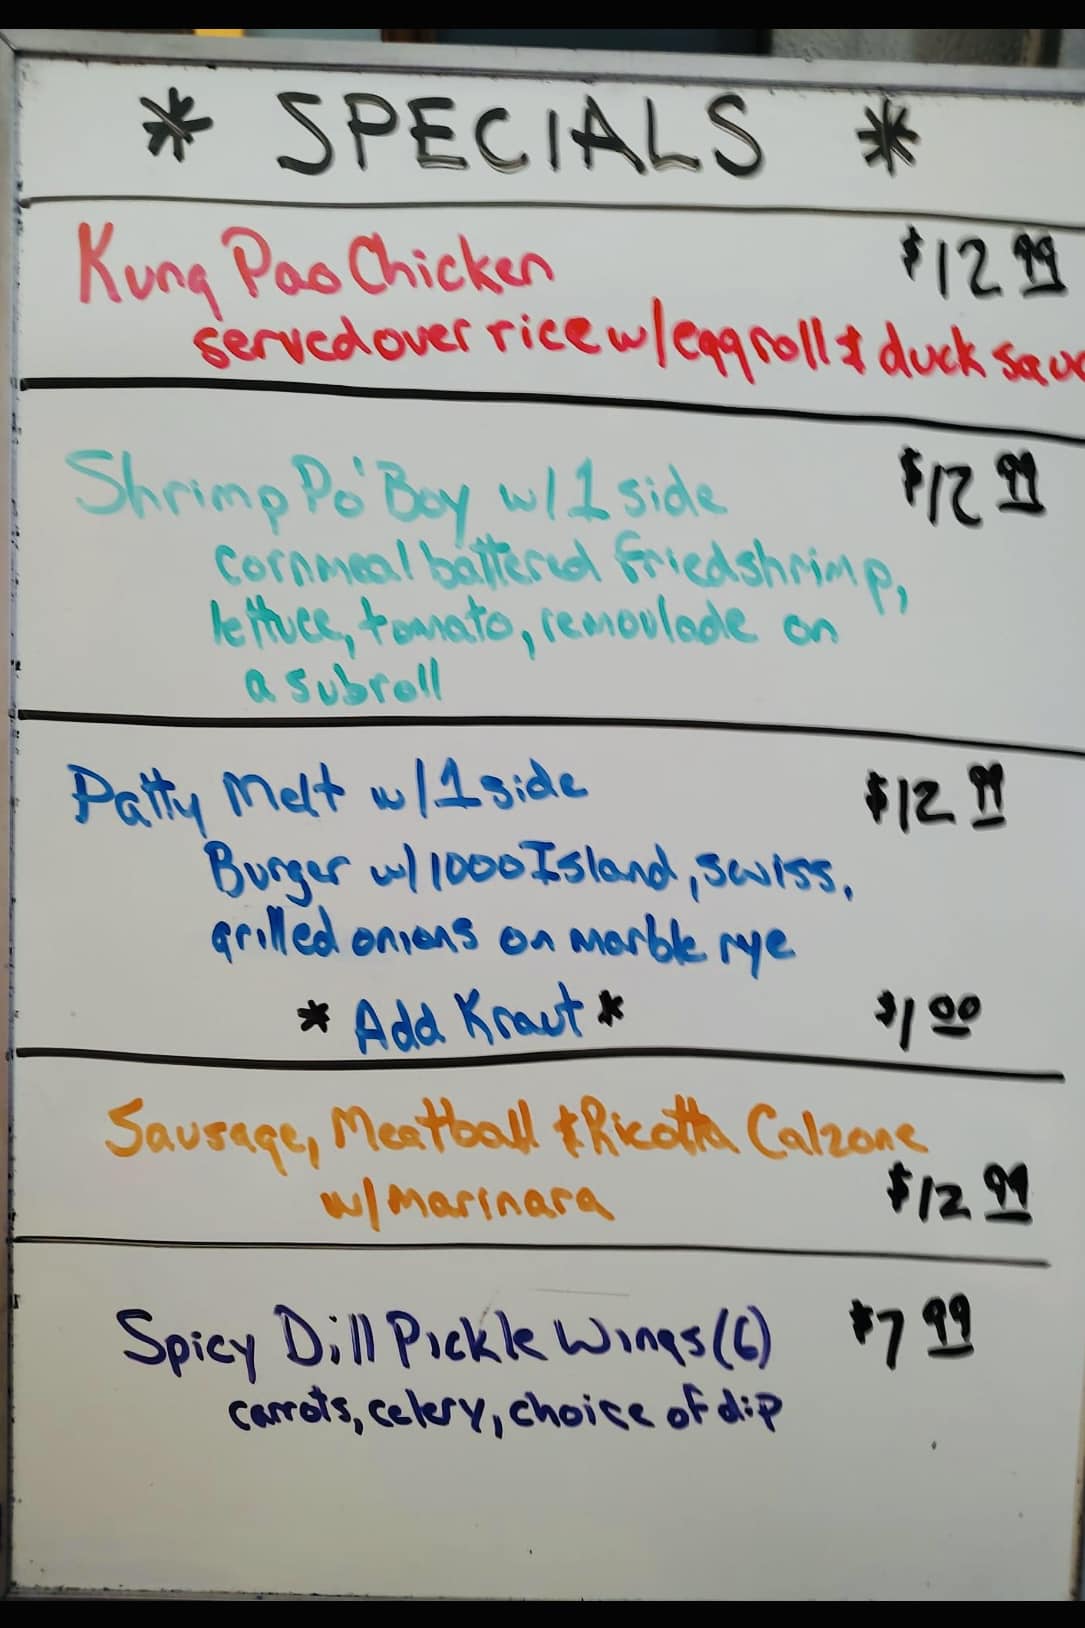 * SPECIALS *
Kung Pao Chicken $12.99
served over rice w/eggroll & duck sauc
Shrimp Po'Boy w/1 side $12.99
cornmeal battered fried shrimp,
lettuce, tomato, remoulade on
a subroll
Patty Melt w/1 side $12.99
Burger w/1000 Island, swiss,
grilled onions on marble rye
* Add Kraut * $1.00
Sausage, Meatball & Ricotta Calzone
w/marinara $12.99
Spicy Dill Pickle Wings (6) $7.99
carrots, celery, choice of dip